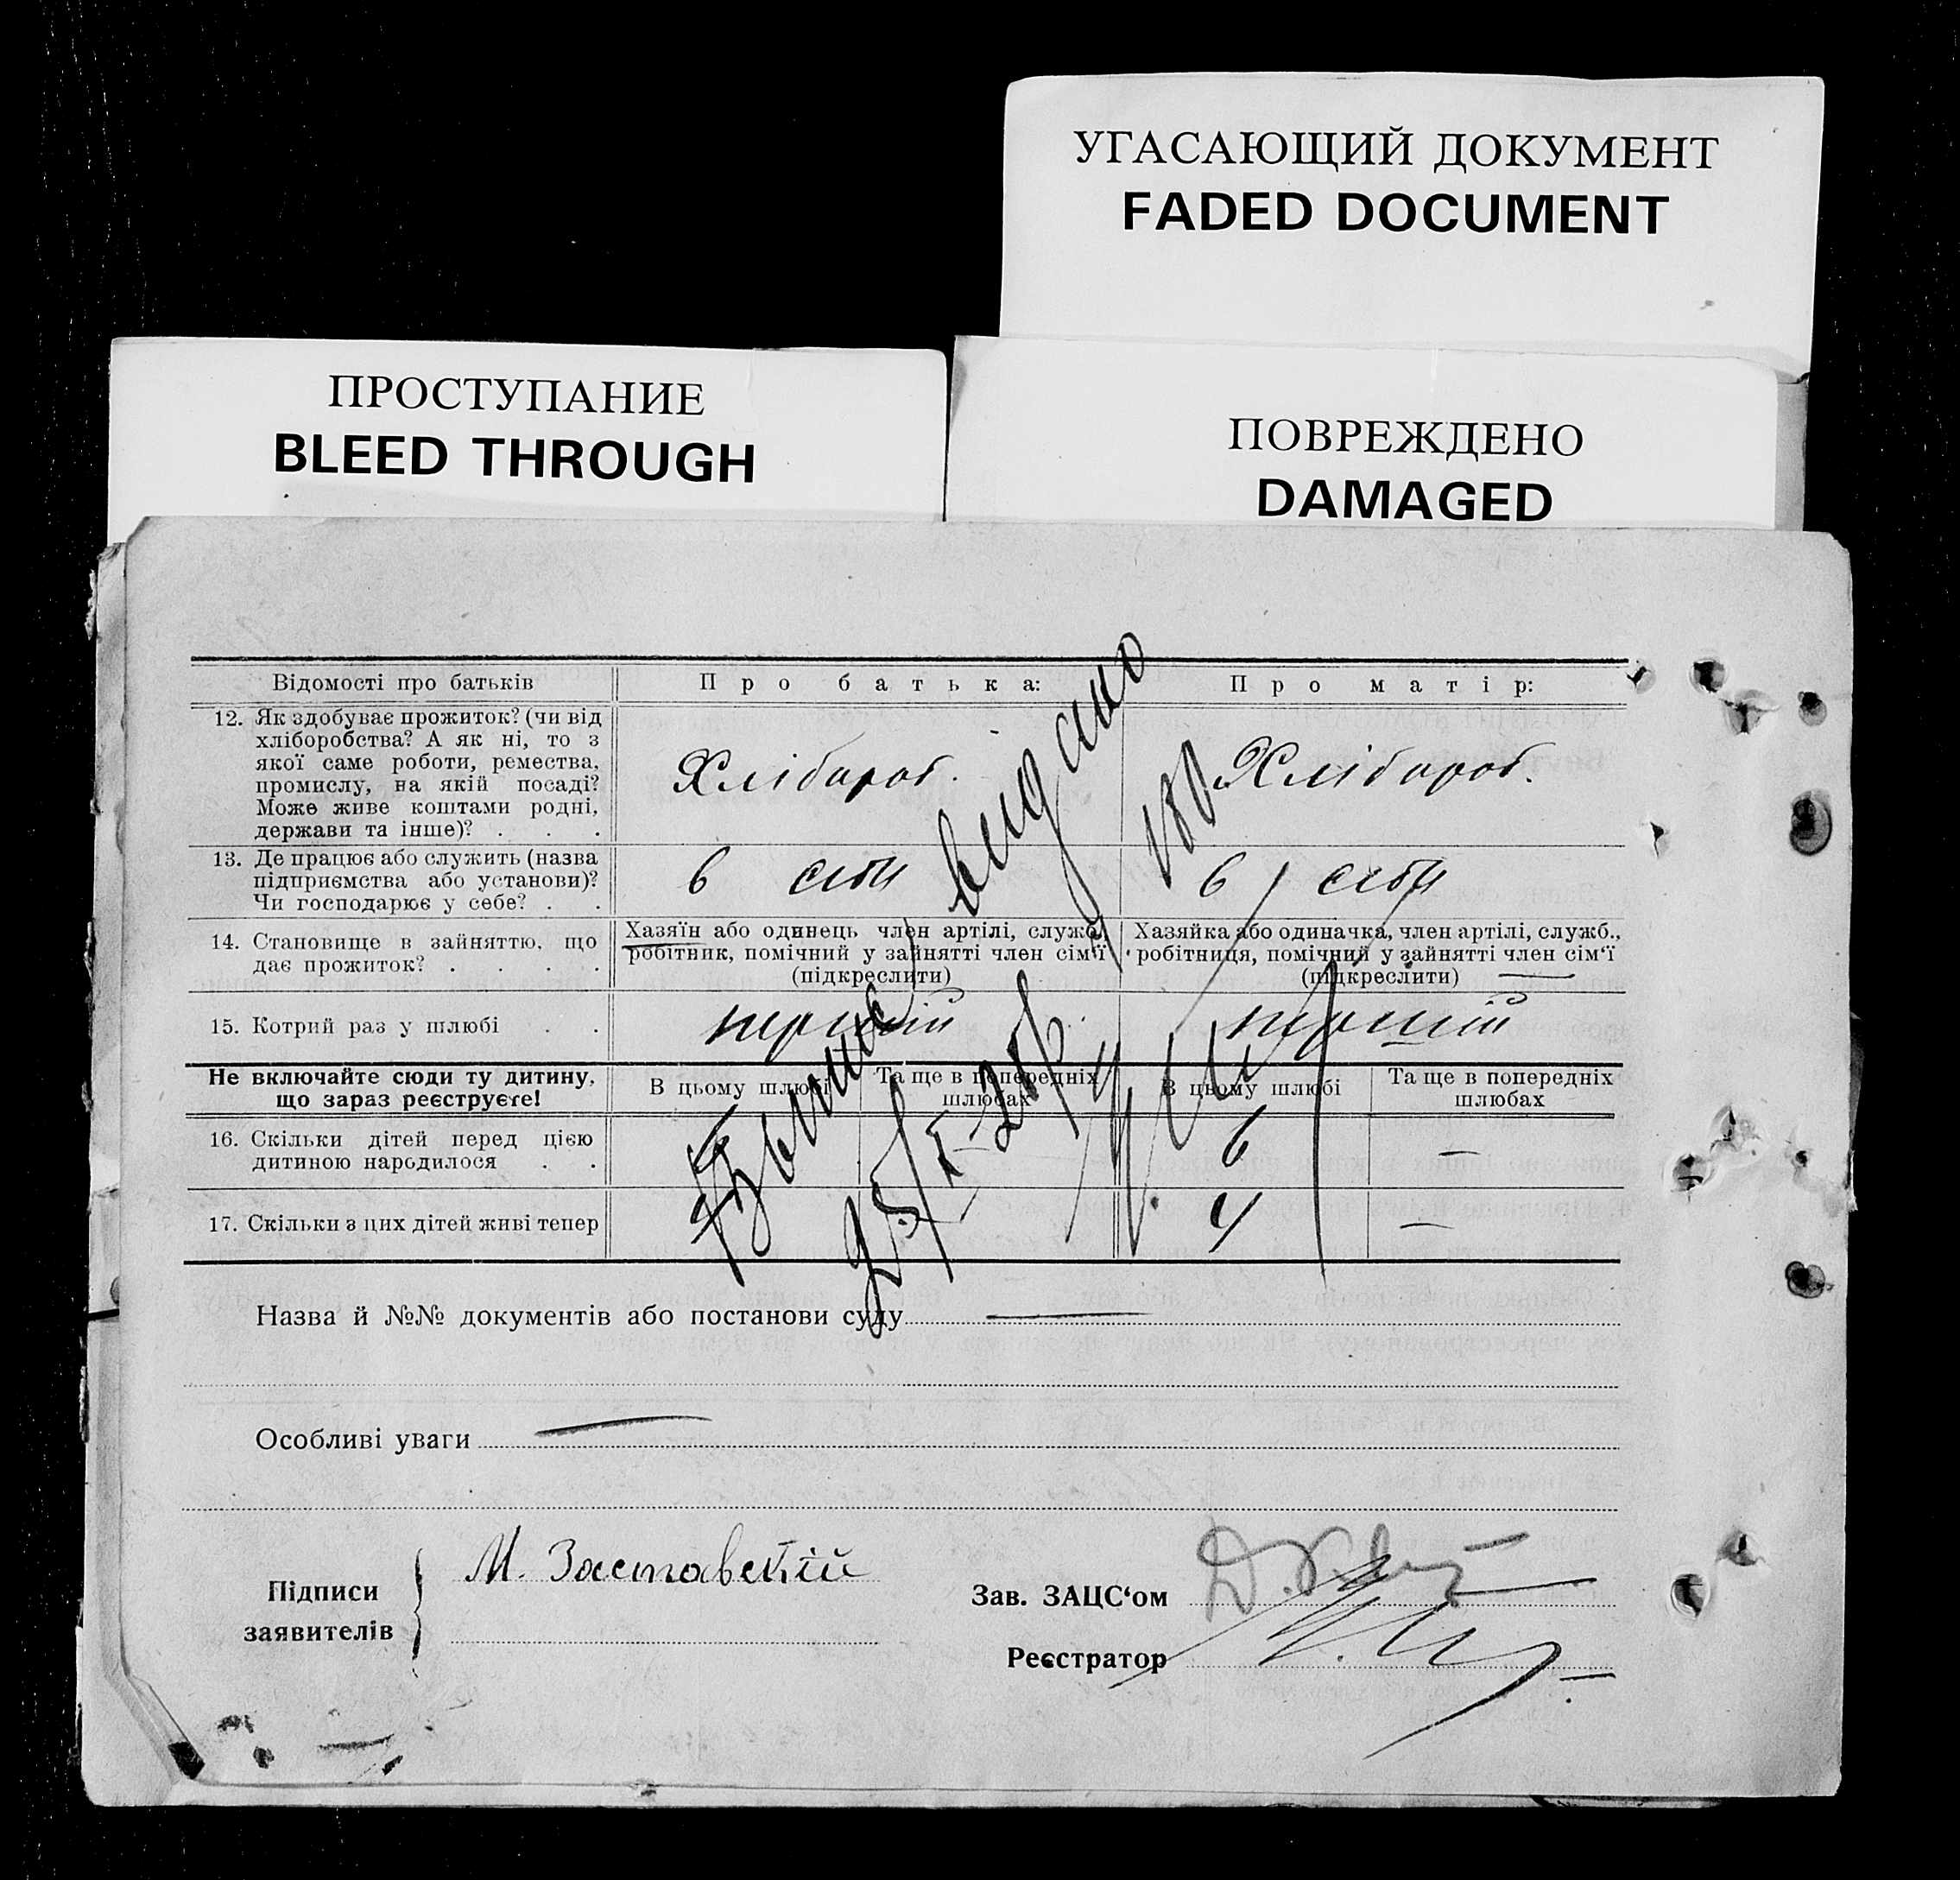 УГАСАЮЩИЙ ДОКУМЕНТ
FADED DOCUMENT
ПРОСТУПАНИЕ
BLEED THROUGH
ПОВРЕЖДЕНО
DAMAGED
Відомості про батьків
Про батька:
Про матір:
12. Як здобуває прожиток? (чи від
хліборобства? А як ні, то з
якої саме роботи, ремества,
промислу, на якій посаді?
Може живе коштами родні,
держави та інше)? . . .
Хлібороб.
Хлібороб.
13. Де працює або служить (назва
підприємства або установи)?
Чи господарює у себе? . .
в себи
в себи
14. Становище в зайняттю, що
дає прожиток? . . . .
Хазяїн або одинець член артілі, служб.,
робітник, помічний у зайнятті член сім'ї
(підкреслити)
Хазяйка або одиначка, член артілі, служб.,
робітниця, помічний у зайнятті член сім'ї
(підкреслити)
15. Котрий раз у шлюбі . .
перший
перший
Не включайте сюди ту дитину,
що зараз реєструєте!
В цьому шлюбі
Та ще в попередніх
шлюбах
В цьому шлюбі
Та ще в попередніх
шлюбах
16. Скільки дітей перед цією
дитиною народилося . .
6
—
17. Скільки з цих дітей живі тепер
4
—
видано
Назва й №№ документів або постанови суду
Особливі уваги
Підписи
заявителів
М. Заставский
Зав. ЗАЦС‘ом
Реєстратор